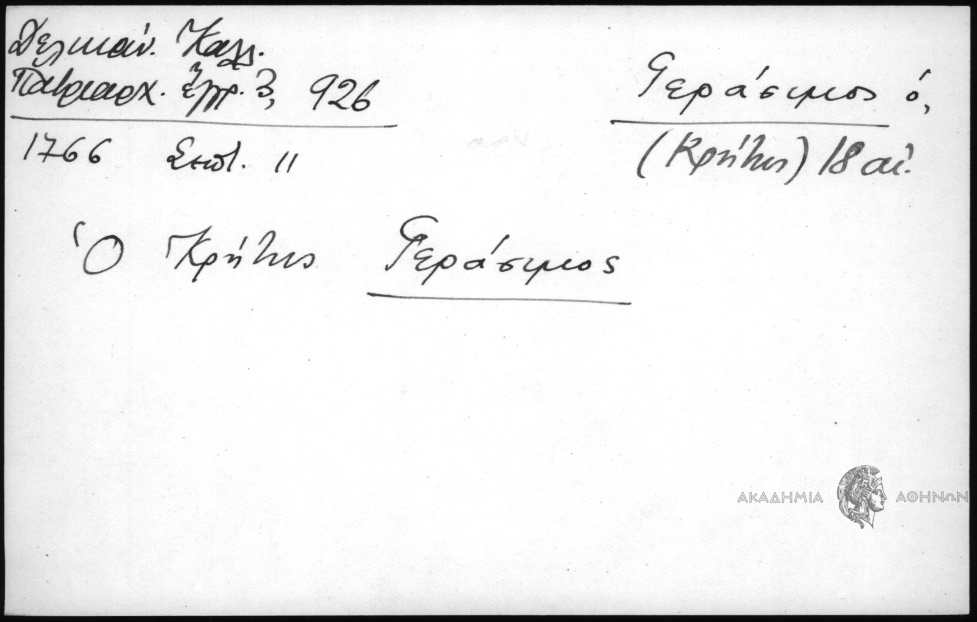 Δελικάν. Καλλ.
Πατριαρχ. Ἔγγρ. 3, 926
1766 Σεπτ. 11
Γεράσιμος ὁ,
(Κρήτης) 18 αἰ.
Ὁ Κρήτης Γεράσιμος
ΑΚΑΔΗΜΙΑ ΑΘΗΝΩΝ